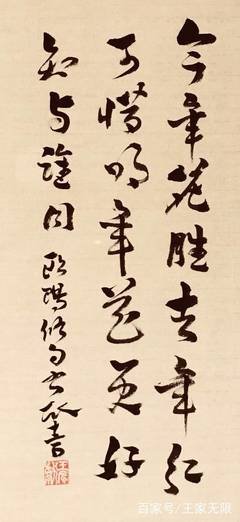 今年花胜去年红
可惜明年花更好
知与誰同 欧陽修句
百家号/王家无限